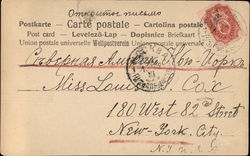 Открытое письмо
Postkarte - Carte postale - Cartolina postale
Post card - Levelező-Lap - Dopisnice Briefkart
Union postale universelle Weltpostverein Union postale universelle
Северная Америка Нью-Йоркъ
Miss Louise S. Cox
180 West 82nd Street
New-York City.
N.Y. U.S.